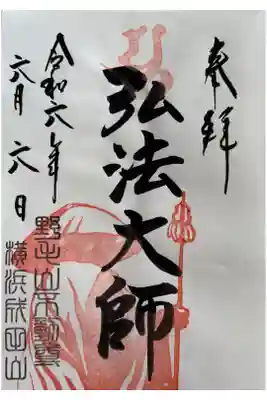 奉拝
弘法大師
令和六年
六月六日
野毛山不動尊
横浜成田山